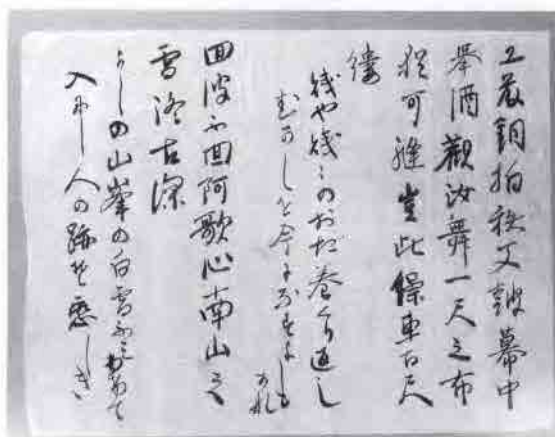 工藤銅拍秩父鼓幕中
挙酒觀汝舞一尺之布
猶可縫豈此繰車百尺
縷
賤や賤〻のおだ巻くり返し
むかしを今になすよしもかな
回波不回阿歌心南山之
雪終古深
よしの山峯の白雪ふみわけて
入にし人の跡ぞ恋しき